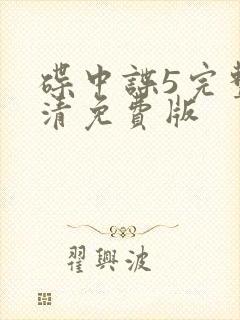 碟中諜5完整
清免費版
翟興波